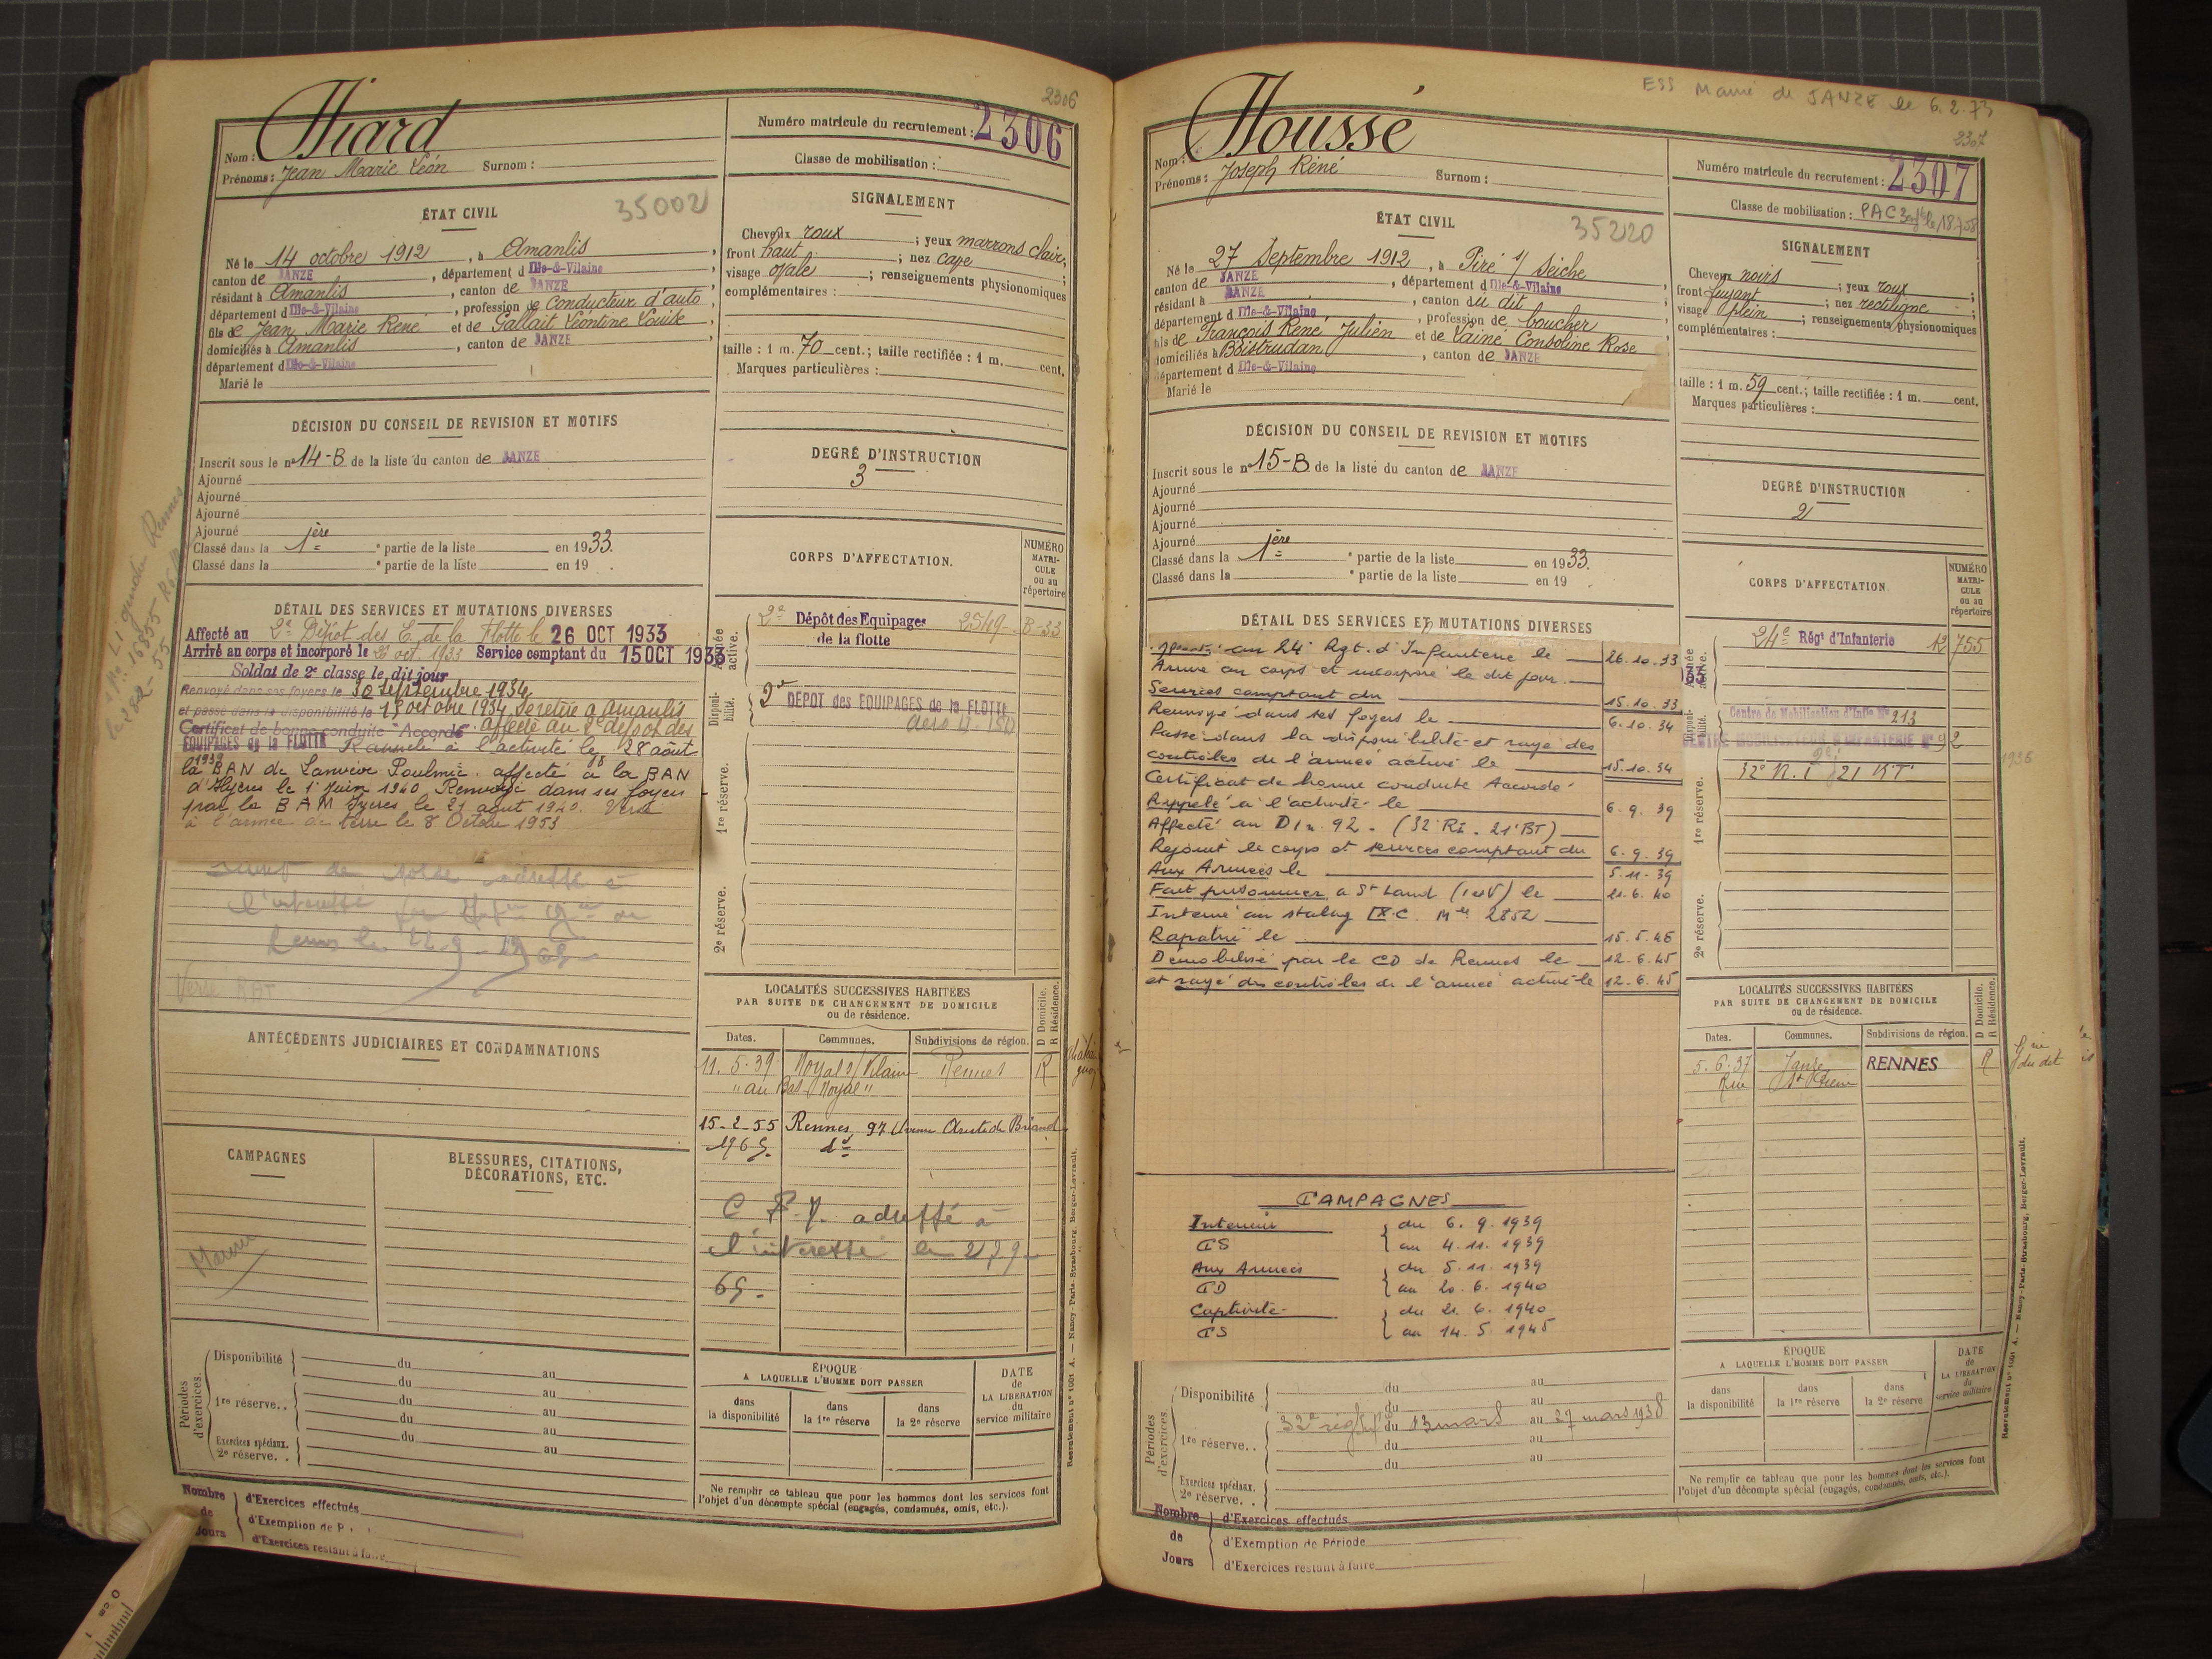 2306
Numéro matricule du recrutement : 2306
Nom : Hiard
Prénoms : Jean Marie Léon Surnom :
Classe de mobilisation :
ÉTAT CIVIL
35002
Né le 14 octobre 1912, à Amanlis
canton de JANZE, département d Ille-&-Vilaine
résidant à Amanlis, canton de JANZE
département d Ille-&-Vilaine, profession de Conducteur d'auto
fils de Jean Marie René et de Gallait Léontine Louise
domiciliés à Amanlis, canton de JANZE
département d Ille-&-Vilaine
Marié le
SIGNALEMENT
Cheveux roux ; yeux marrons clairs ;
front haut ; nez cave ;
visage ovale ; renseignements physionomiques
complémentaires :
taille : 1 m. 70 cent.; taille rectifiée : 1 m. cent.
Marques particulières :
DÉCISION DU CONSEIL DE REVISION ET MOTIFS
Inscrit sous le n° 14-B de la liste du canton de JANZE
Ajourné
Ajourné
Ajourné
Ajourné
Classé dans la 1ère partie de la liste en 1933.
Classé dans la partie de la liste en 19 .
DEGRÉ D'INSTRUCTION
3
DÉTAIL DES SERVICES ET MUTATIONS DIVERSES
Affecté au 2e Dépôt des E. de la Flotte le 26 OCT 1933
Arrivé au corps et incorporé le 26 oct. 1933 Service comptant du 15 OCT 1933
Soldat de 2e classe le dit jour
Renvoyé dans ses foyers le 30 septembre 1934
et passé dans la disponibilité le 15 octobre 1934 Se retire à Amanlis
Certificat de bonne conduite "Accordé" affecté au 2e dépôt des
EQUIPAGES de la FLOTTE Rappelé à l'activité le 28 août
1939
la BAN de Lanvéoc Poulmic. affecté à la BAN
d'Hyères le 1er Juin 1940 Renvoyé dans ses foyers
par la BAM Hyères le 21 août 1940. Versé
à l'armée de terre le 8 Octobre 1953
l'intéressé
Versé RAT
CORPS D'AFFECTATION.
NUMÉRO MATRICULE ou au répertoire
Armée active.
2e Dépôt des Equipages 2549 B-33
de la flotte
Disponibilité.
2e DEPOT des EQUIPAGES de la FLOTTE
1re réserve.
2e réserve.
ANTÉCÉDENTS JUDICIAIRES ET CONDAMNATIONS
LOCALITÉS SUCCESSIVES HABITÉES
PAR SUITE DE CHANGEMENT DE DOMICILE
ou de résidence.
D Domicile.
R Résidence.
Dates. Communes. Subdivisions de région.
11.5.39 Noyal s/ Vilaine Rennes R
"au Bas Noyal"
15-2-55 Rennes 97 Avenue Aristide Briand
1965. do
adressé à
l'intéressé le 27 9
65.
CAMPAGNES
BLESSURES, CITATIONS,
DÉCORATIONS, ETC.
Périodes d'exercices.
Disponibilité du au
du au
1re réserve.. du au
du au
Exercices spéciaux. du au
2e réserve. . au
ÉPOQUE
A LAQUELLE L'HOMME DOIT PASSER
dans la disponibilité
dans la 1re réserve
dans la 2e réserve
DATE de LA LIBÉRATION du service militaire
Ne remplir ce tableau que pour les hommes dont les services font
l'objet d'un décompte spécial (engagés, condamnés, omis, etc.).
Recrutement n° 1001 A. — Nancy-Paris-Strasbourg, Berger-Levrault.
Nombre de Jours
d'Exercices effectués
d'Exemption de P
d'Exercices restant à faire
0 cm 1
ESS Mairie de JANZE le 6.2.73
2307
Numéro matricule du recrutement : 2307
Nom : Houssé
Prénoms : Joseph Réné Surnom :
Classe de mobilisation : PAC
ÉTAT CIVIL
35220
Né le 27 Septembre 1912, à Piré s/ Seiche
canton de JANZE, département d Ille-&-Vilaine
résidant à JANZE, canton du dit
département d Ille-&-Vilaine, profession de boucher
fils de François René Julien et de Lainé Consoline Rose
domiciliés à Boistrudan, canton de JANZE
département d Ille-&-Vilaine
Marié le
SIGNALEMENT
Cheveux noirs ; yeux roux ;
front fuyant ; nez rectiligne ;
visage plein ; renseignements physionomiques
complémentaires :
taille : 1 m. 59 cent.; taille rectifiée : 1 m. cent.
Marques particulières :
DÉCISION DU CONSEIL DE REVISION ET MOTIFS
Inscrit sous le n° 15-B de la liste du canton de JANZE
Ajourné
Ajourné
Ajourné
Ajourné
Classé dans la 1ère partie de la liste en 1933.
Classé dans la partie de la liste en 19 .
DEGRÉ D'INSTRUCTION
2
DÉTAIL DES SERVICES ET MUTATIONS DIVERSES
Affecté au 24e Rgt. d'Infanterie le 26.10.33
Arrivé au corps et incorporé le dit jour.
Services comptant du 15.10.33
Renvoyé dans ses foyers le 6.10.34
Passé dans la disponibilité et rayé des
contrôles de l'armée active le 15.10.34
Certificat de bonne conduite Accordé
Rappelé à l'activité le 6.9.39
Affecté au D In. 92 - (32e RI - 21e BT)
Rejoint le corps et services comptant du 6.9.39
Aux Armées le 5.11.39
Fait prisonnier a St Land le 21.6.40
Interné au stalag IX.C. Mle 2852
Rapatrié le 15.5.45
Démobilisé par le CD de Rennes le 12.6.45
et rayé des contrôles de l'armée active le 12.6.45
CORPS D'AFFECTATION
NUMÉRO MATRICULE ou au répertoire
Armée active.
24e Régt d'Infanterie 12 755
Disponibilité.
Centre de Mobilisation d'Infie N° 213
CENTRE MOBILISATEUR D'INFANTERIE N° 92
1936
1re réserve.
2e réserve.
LOCALITÉS SUCCESSIVES HABITÉES
PAR SUITE DE CHANGEMENT DE DOMICILE
ou de résidence.
D Domicile.
R Résidence.
Dates. Communes. Subdivisions de région.
5.6.37 Janzé RENNES R
Rue St Pierre
du dit
CAMPAGNES
Intérieur du 6.9.1939
CS au 4.11.1939
Aux Armées du 5.11.1939
CD au 20.6.1940
Captivité du 21.6.1940
CS au 14.5.1945
Périodes d'exercices.
Disponibilité du au
du au
1re réserve.. 32e régt du 13 mars au 27 mars 1938
du au
du au
Exercices spéciaux.
2e réserve. .
ÉPOQUE
A LAQUELLE L'HOMME DOIT PASSER
dans la disponibilité
dans la 1re réserve
dans la 2e réserve
DATE de LA LIBÉRATION du service militaire
Ne remplir ce tableau que pour les hommes dont les services font
l'objet d'un décompte spécial (engagés, condamnés, omis, etc.).
Recrutement n° 1001 A. — Nancy-Paris-Strasbourg, Berger-Levrault.
Nombre de Jours
d'Exercices effectués
d'Exemption de Période
d'Exercices restant à faire